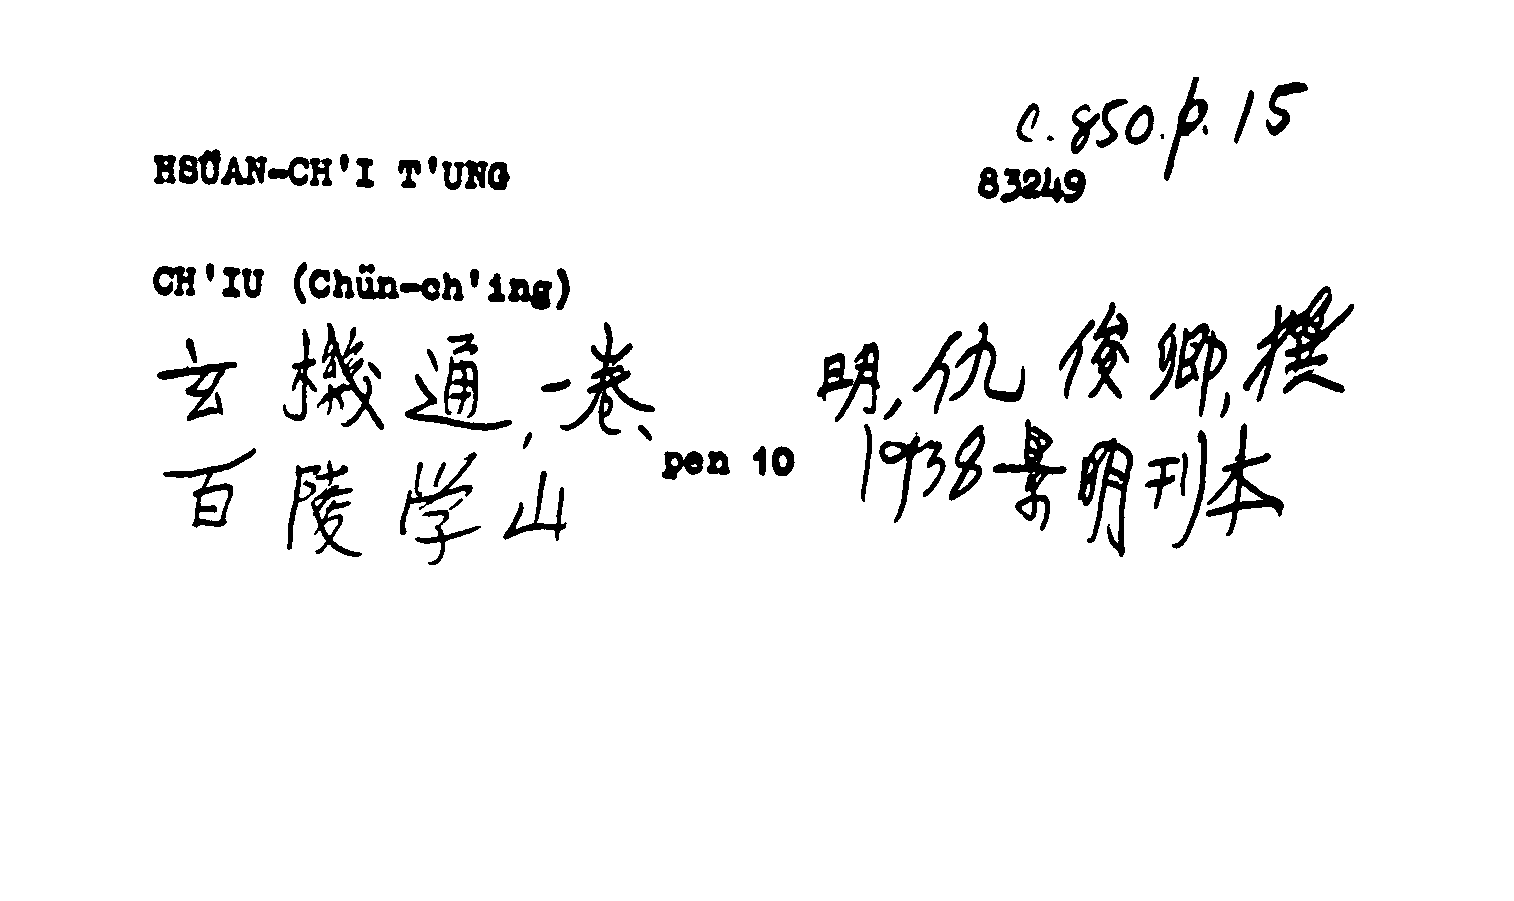 c.850.p.15
HSÜAN-CH'I T'UNG 83249
CH'IU (Chün-ch'ing)
玄機通,一卷、 明,仇俊卿,撰
百陵学山 pen 10 1938景明刊本